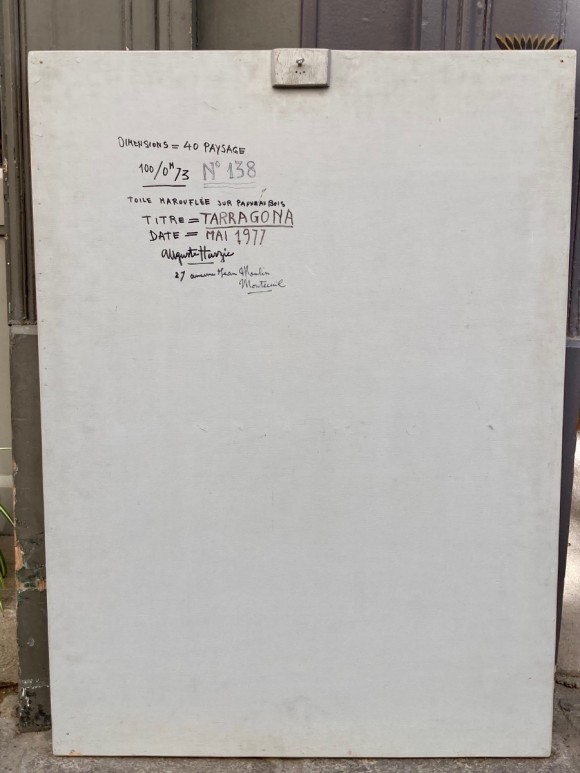 DIMENSIONS = 40 PAYSAGE
100/0M73 N° 138
TOILE MAROUFLÉE SUR PANNEAU BOIS
TITRE = TARRAGONA
DATE = MAI 1977
Auguste
27 avenue Jean Moulin
Montreuil